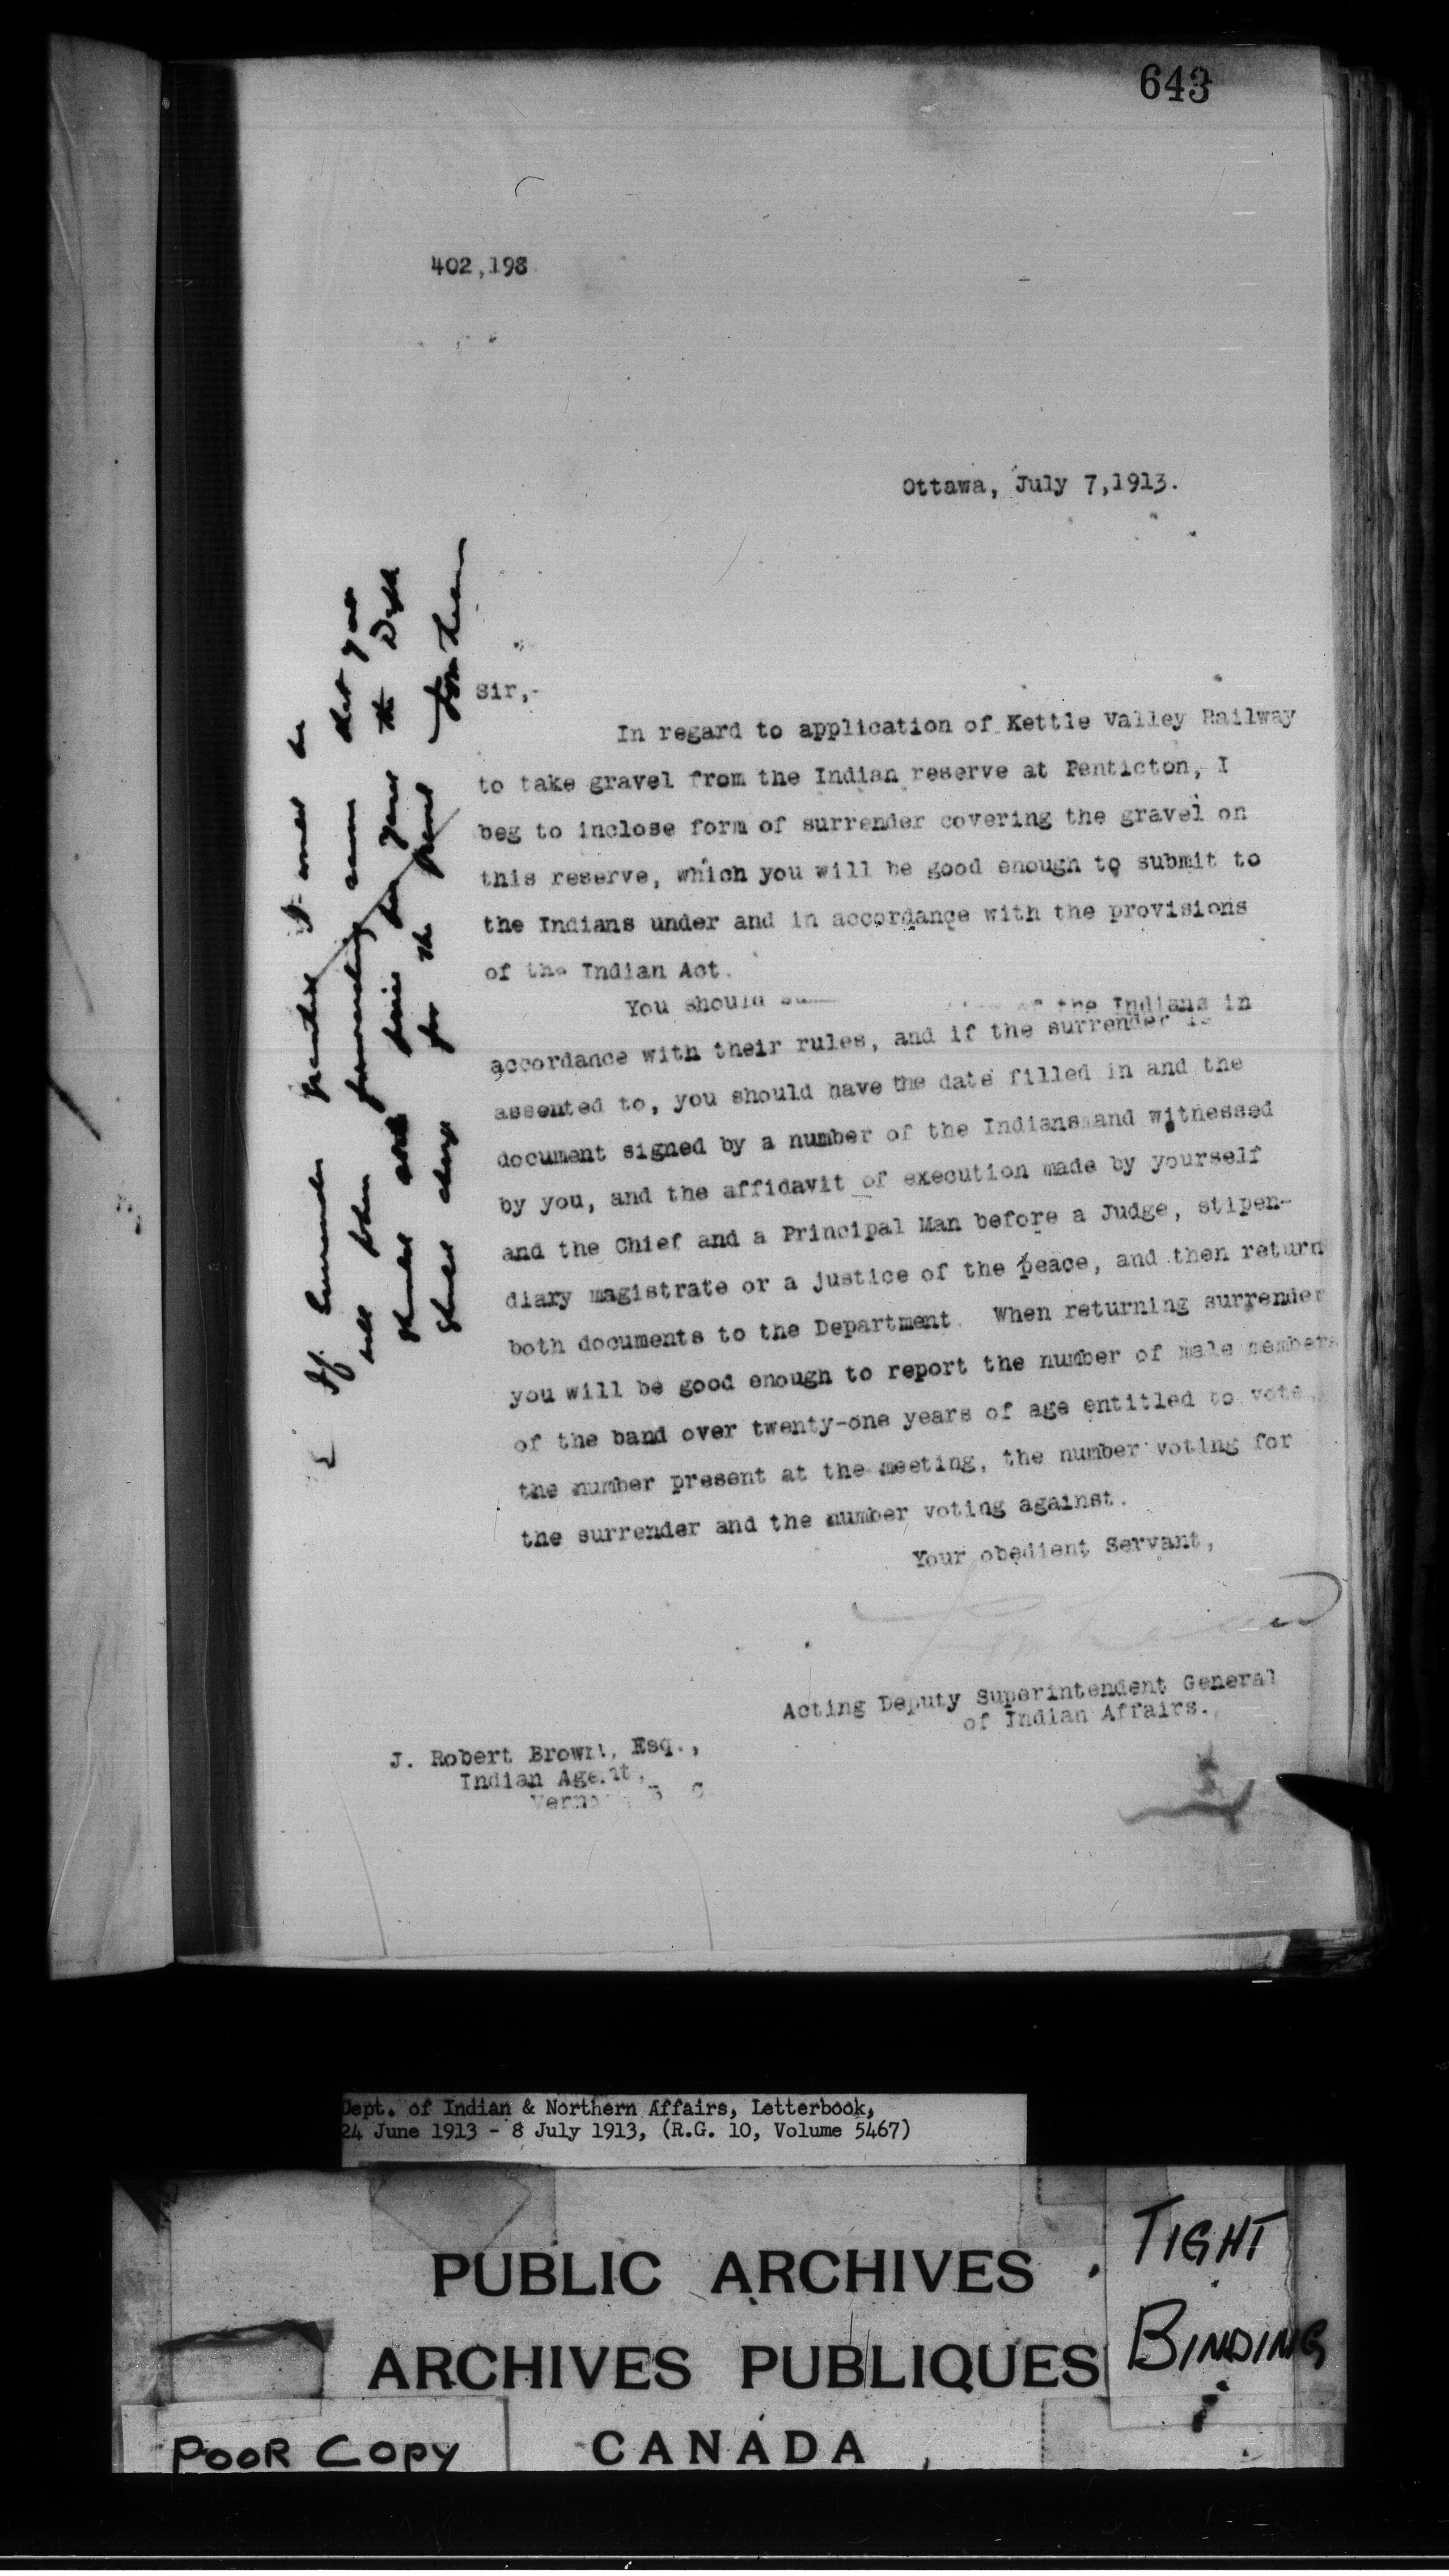 643
402,198
Ottawa, July 7,1913.
Sir,-
In regard to application of Kettle Valley Railway
to take gravel from the Indian reserve at Penticton, I
beg to inclose form of surrender covering the gravel on
this reserve, which you will be good enough to submit to
the Indians under and in accordance with the provisions
of the Indian Act.
You should of the Indians in
accordance with their rules, and if the surrender is
assented to, you should have the date filled in and the
document signed by a number of the Indians and witnessed
by you, and the affidavit of execution made by yourself
and the Chief and a Principal Man before a Judge, stipen-
diary magistrate or a justice of the peace, and then return
both documents to the Department. When returning surrender
you will be good enough to report the number of male members
of the band over twenty-one years of age entitled to vote,
the number present at the meeting, the number voting for
the surrender and the number voting against.
Your obedient Servant,
Acting Deputy Superintendent General
of Indian Affairs.
J. Robert Brown, Esq.,
Indian Agent,
Vernon B C
If Surrender is granted I would be
will when forwarding same that you
should state price per yard the Dept
should charge for the gravel
Dept. of Indian & Northern Affairs, Letterbook,
24 June 1913 - 8 July 1913, (R.G. 10, Volume 5467)
PUBLIC ARCHIVES
ARCHIVES PUBLIQUES
CANADA
TIGHT
BINDING
POOR COPY